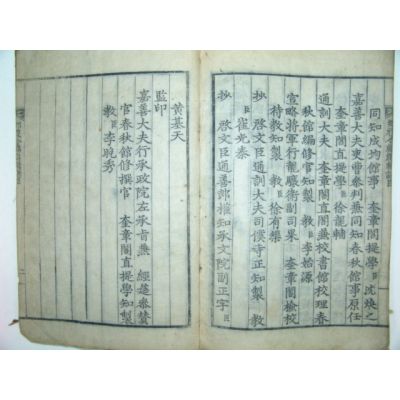 同知成均館事 奎章閣提學臣沈煥之
嘉善大夫吏曹叅判兼同知春秋館事原任
奎章閣直提學臣徐龍輔
通訓大夫奎章閣直閣兼校書館校理春
秋館編修官知製 教臣李始源
宣略將軍行龍驤衛副司果 奎章閣檢校
待教知製 教臣徐有榘
抄 啓文臣通訓大夫司僕寺正知製 教
臣崔光泰
抄 啓文臣通善郎權知承文院副正字臣
黃基天
監印
嘉善大夫行承政院左承旨兼 經筵叅贊
官春秋館修撰官 奎章閣直提學知製
教臣李晩秀